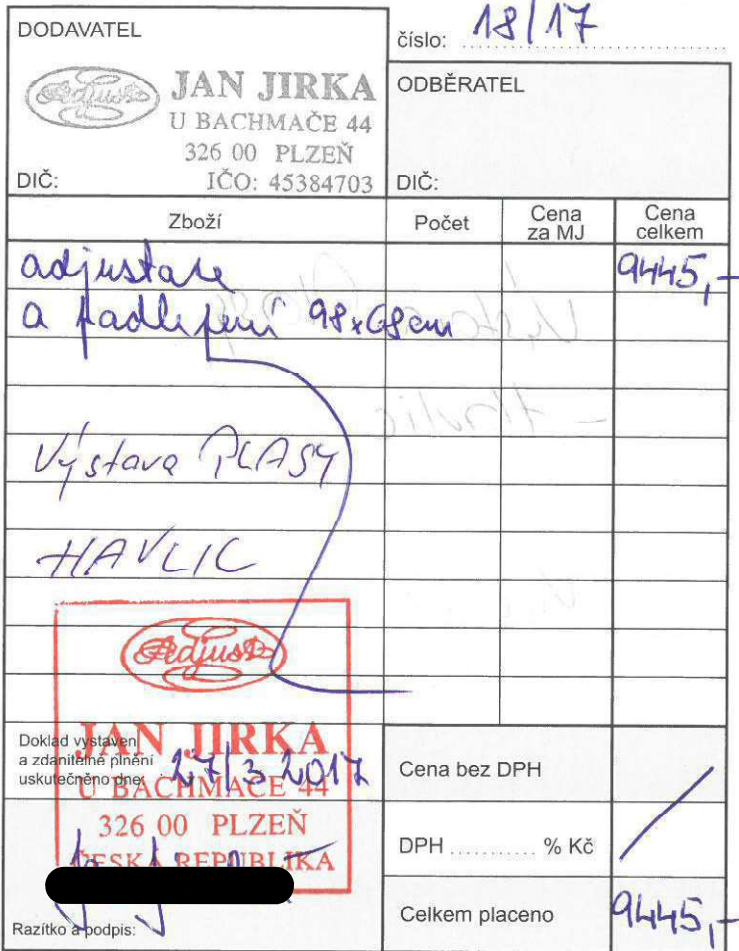 DODAVATEL
Adjust
JAN JIRKA
U BACHMAČE 44
326 00 PLZEŇ
DIČ: IČO: 45384703
číslo: 18/17
ODBĚRATEL
DIČ:
Zboží Počet Cena za MJ Cena celkem
adjustace 9445,-
a podlepení 98x68cm
Výstava PLASY
HAVLIC
Adjust
JAN JIRKA
U BACHMAČE 44
326 00 PLZEŇ
ČESKÁ REPUBLIKA
Doklad vystaven
a zdanitelné plnění
uskutečněno dne: 27/3 2017
Razítko a podpis:
Cena bez DPH
DPH .......... % Kč
Celkem placeno 9445,-